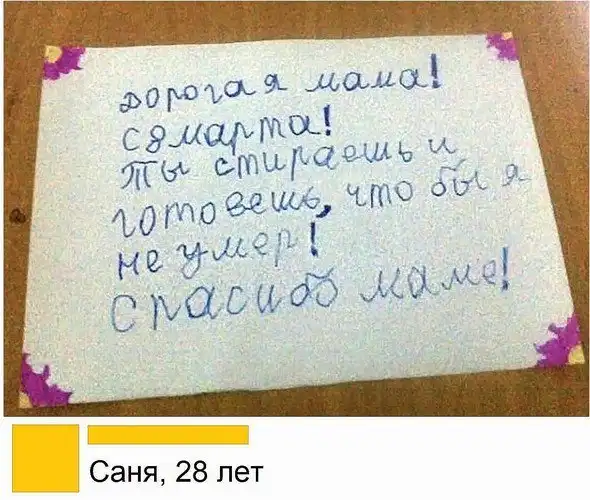 дорогая мама!
С 8 марта!
Ты стираешь и
готовешь, что бы я
не умер!
Спасибо маме!
Саня, 28 лет